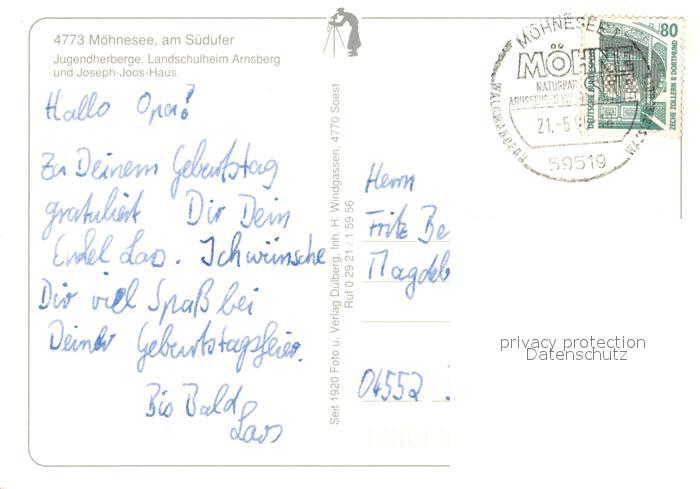 4773 Möhnesee, am Südufer
Jugendherberge, Landschulheim Arnsberg
und Joseph-Joos-Haus
Hallo Opa!
Zu Deinem Geburtstag
gratuliert Dir Dein
Enkel Lars. Ich wünsche
Dir viel Spaß bei
Deiner Geburtstagsfeier.
Bis Bald
Lars
Seit 1920 Foto u. Verlag Dülberg, Inh. H. Windgassen, 4770 Soest
Ruf 0 29 21 / 1 59 56
MÖHNESEE 1
MÖHNE
NATURPARK
WALDWANDERN
21.-5.9
59519
80
DEUTSCHE BUNDESPOST
ZECHE ZOLLERN II DORTMUND
Herrn
Fritz Be
Magdeb
04552
privacy protection
Datenschutz